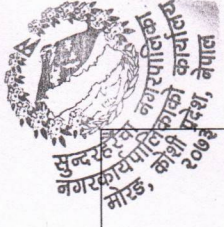 सुन्दरहरैंचा नगरपालिका
नगर कार्यपालिकाको कार्यालय
मोरङ, कोशी प्रदेश, नेपाल
२०७३